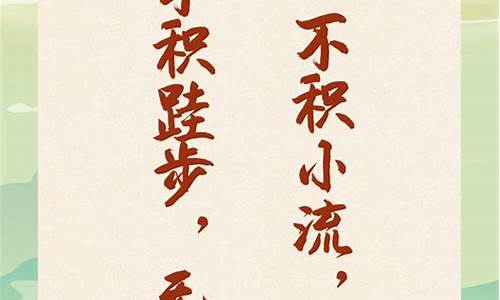 积跬步，无
不积小流，